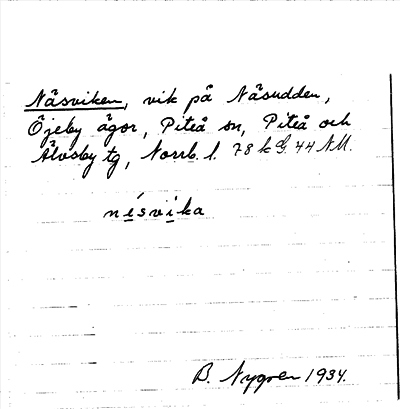 Näsviken, vik på Näsudden,
Öjeby ägor, Piteå sn, Piteå och
Älvsby tg, Norrb. l. 78 k G. 44 NM.
nésvika
B. Nygren 1934.